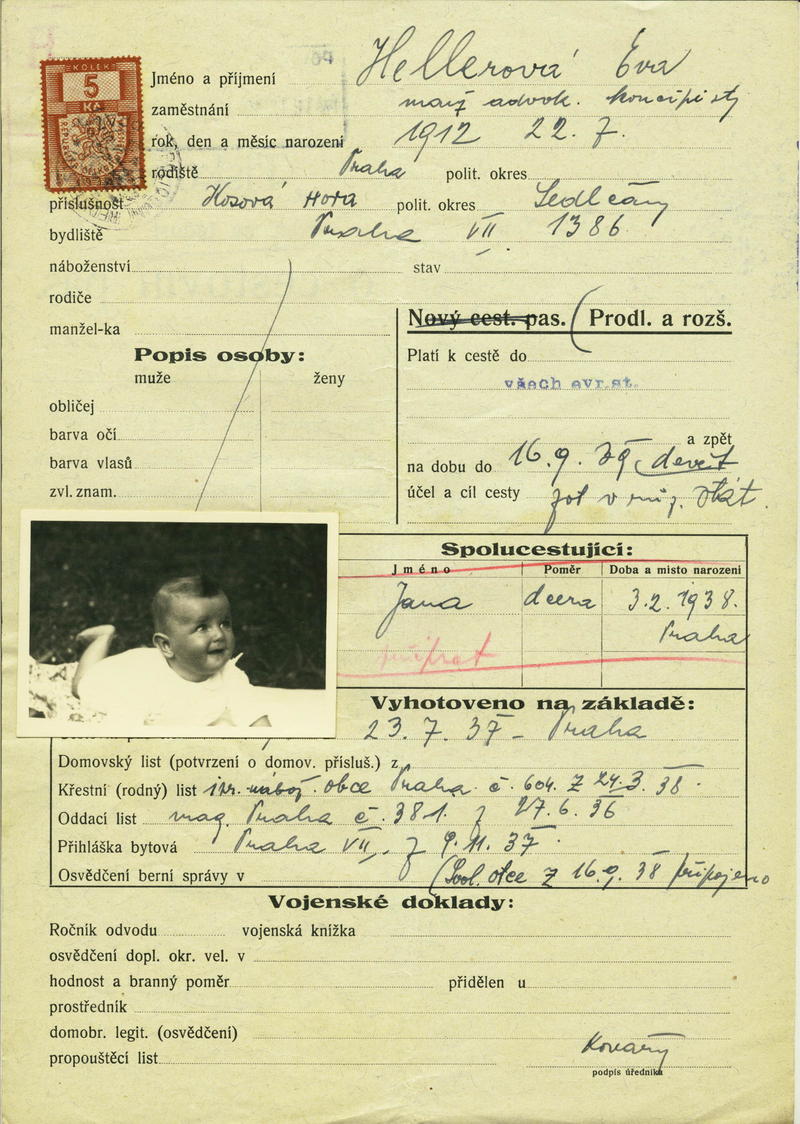 KOLEK
5
Kč
Jméno a příjmení Hellerová Eva
zaměstnání manž. advok. koncipisty
rok, den a měsíc narození 1912 22. 7.
rodiště Praha polit. okres
příslušnost Kosová Hora polit. okres Sedlčany
bydliště Praha VII 1386
náboženství stav
rodiče
manžel-ka
Nový cest. pas. Prodl. a rozš.
Popis osoby:
muže ženy
obličej
barva očí
barva vlasů
zvl. znam.
Platí k cestě do
všech evr. st.
a zpět
na dobu do 16. 9. 39
účel a cíl cesty
Spolucestující:
Jméno Poměr Doba a místo narození
Jana dcera 3. 2. 1938.
Praha
připsat
Vyhotoveno na základě:
23. 7. 37 – Praha
Domovský list (potvrzení o domov. přísluš.) z
Křestní (rodný) list izr. nábož. obce Praha č. 604. z 24. 3. 38.
Oddací list mag. Praha č. 381. z 27. 6. 36
Přihláška bytová Praha VII, z 9. 11. 37.
Osvědčení berní správy v otce z 16. 9. 38 připojeno
Vojenské doklady:
Ročník odvodu vojenská knížka
osvědčení dopl. okr. vel. v
hodnost a branný poměr přidělen u
prostředník
domobr. legit. (osvědčení)
propouštěcí list
podpis úředníka